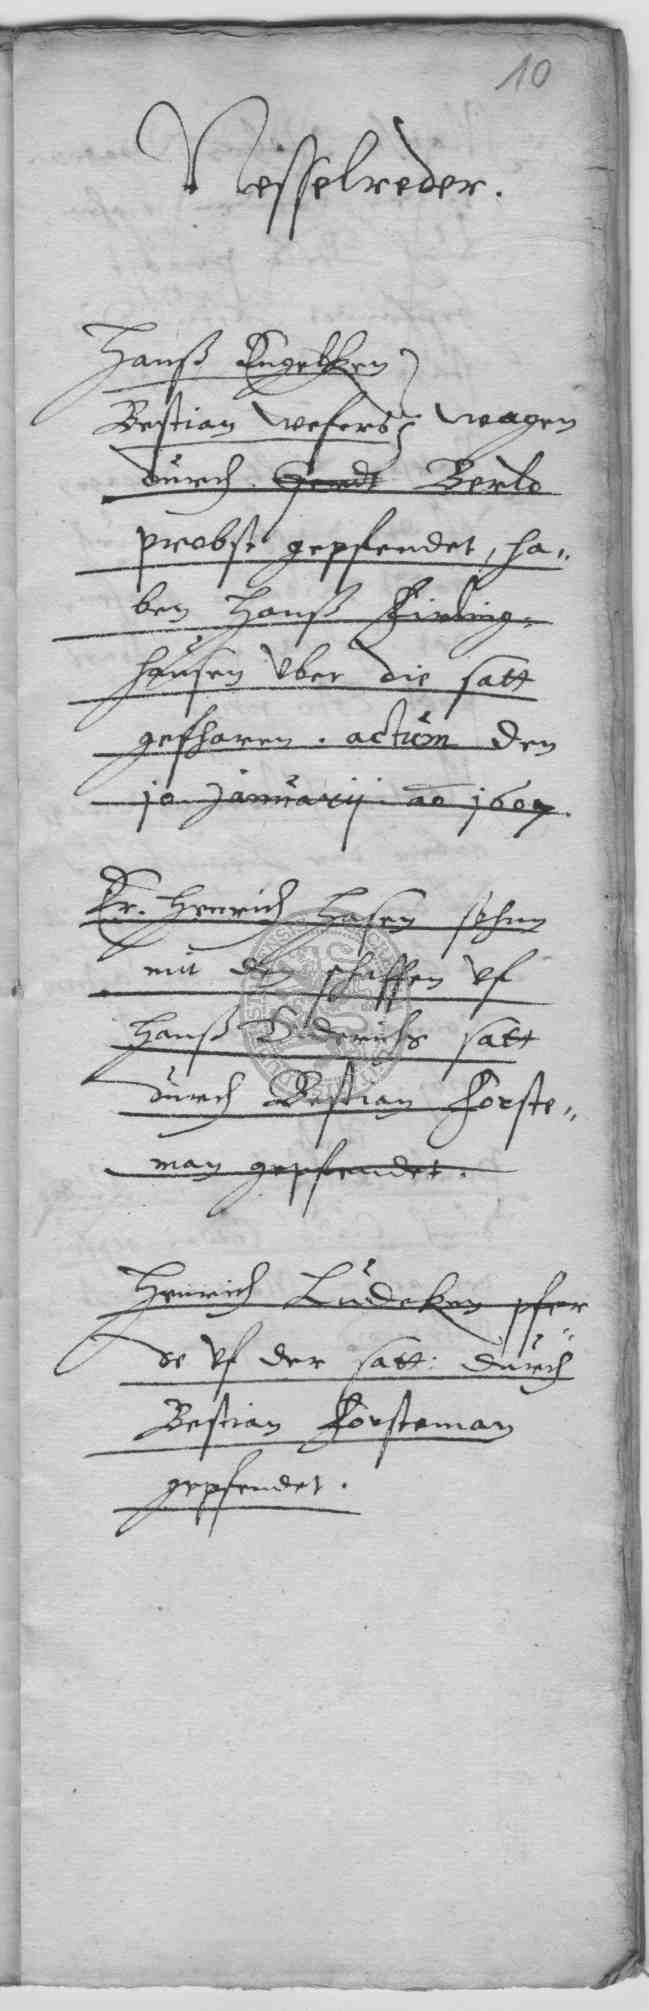 10
Nesselreder.
Hanß Engelken
Bestian wefers wagen
durch Gerdt Berlo
probst gepfendet, ha„
ben Hanß Firling„
hausen vber die satt
gefharen. actum den
10 Januarij ao 1607.
Er. Henrich Hasen sohn
mit den schaffen vf
Hanß Diderichs satt
durch Bestian Forste„
man gepfendet.
Henrich Lüdeken pfer„
de vf der satt: durch
Bestian Forsteman
gepfendet.